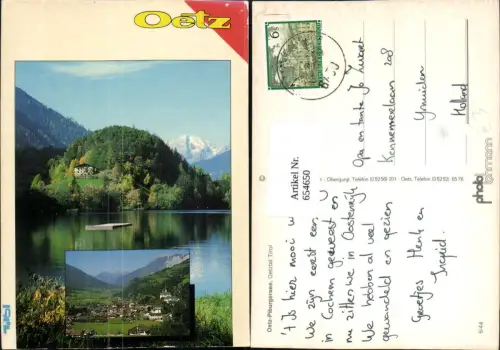 Oetz
Tirol
Oetz-Piburgersee, Oetztal Tirol
6
Opa en tante Jo Zwart
Kennemerlaan 208
IJmuiden
Holland
Artikel Nr.
654650
't is hier mooi
We zijn eerst een
in Cochem geweest en
nu zitten we in Oostenrijk
We hebben al veel
gewandeld en gezien
Groetjes Henk en
Ingrid.
Obergurgl, Telefon
Oetz, Telefon
photo
6/44